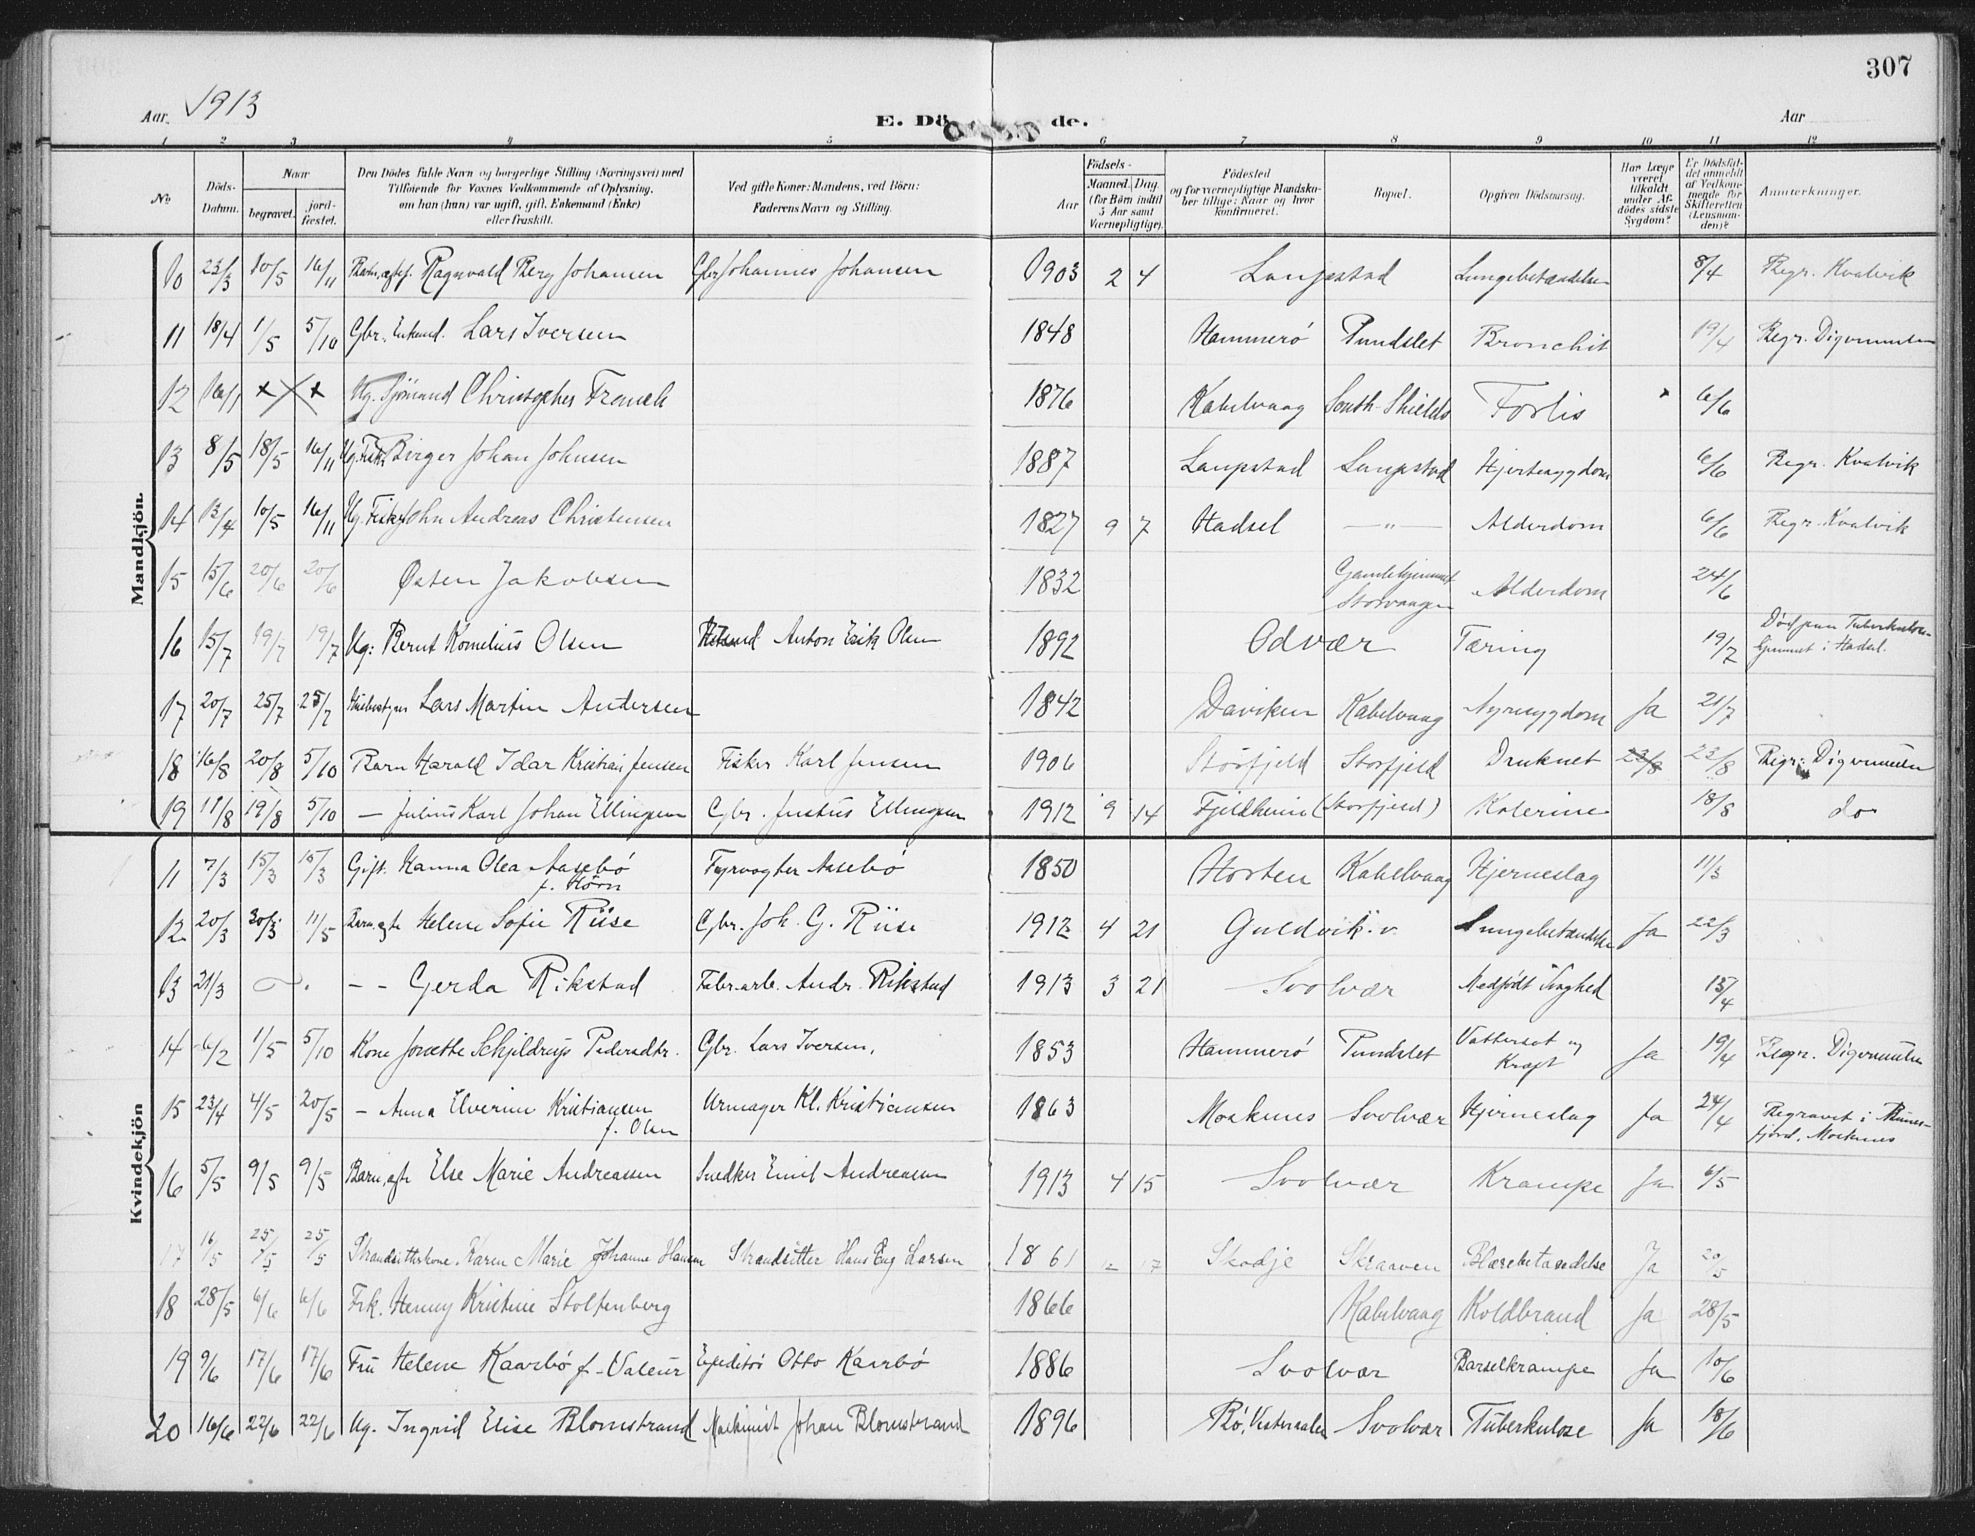 307
Aar 1913
E. Dö de.
Aar
1 2 3 4 5 6 7 8 9 10 11 12
No
Döds-Datum.
Naar
begravet.
jord-fæstet.
Den Dödes fulde Navn og borgerlige Stilling (Næringsvei) med
Tilföiende for Voxnes Vedkommende af Oplysning,
om han (hun) var ugift, gift, Enkemand (Enke)
eller fraskilt.
Ved gifte Koner: Mandens, ved Börn:
Faderens Navn og Stilling.
Födsels-
Aar
Maaned. Dag.
(for Börn indtil
5 Aar samt
Værnepligtige).
Födested
og for værnepligtige Mandska-
ber tillige: Naar og hvor
konfirmeret.
Bopæl.
Opgiven Dödsaarsag.
Har Læge
været
tilkaldt
under Af-
dödes sidste
Sygdom?
Er Dödsfal-
det anmeldt
af Vedkom-
mende for
Skifteretten
(Lensman-
den)?
Anmærkninger.
Mandkjön.
10 23/3 10/5 16/11 Barn, ægtef. Ragnvald Berg Johansen Gbr Johannes Johansen 1903 2 4 Laupstad Lungebetændelse 8/4 Begr. Kvalvik
11 18/4 1/5 5/10 Gbr. Enkemd. Lars Iversen 1848 Hammerö Pundslet Bronchit 19/4 Begr. Digermulen
12 16/1 × × Ug. Sjömand Christopher Franck 1876 Kabelvaag South Shields Forlis 6/6
13 8/5 18/5 16/11 Ug. Fisk. Birger Johan Johnsen 1887 Laupstad Laupstad Hjertesygdom 6/6 Begr. Kvalvik
14 13/4 10/5 16/11 Ug. Fisker John Andreas Christensen 1827 9 7 Hadsel — " — Alderdom 6/6 Begr. Kvalvik
15 15/6 20/6 20/6 Østen Jakobsen 1832 Gamlehjemmet Storvaagen Alderdom 24/6
16 15/7 19/7 19/7 Ug: Bernt Kornelius Olsen Anton Erik Olsen 1892 Odvær Tæring 19/7 Död paa Tuberkulose-
hjemmet i Hadsel.
17 20/7 25/7 25/7 Lars Martin Andersen 1842 Daviken Kabelvaag Nyresygdom Ja 21/7
18 16/8 20/8 5/10 Barn Harald Idar Kristian Jensen Fisker Karl Jensen 1906 Storfjeld Storfjeld Druknet 23/8 22/8 Begr. Digermulen
19 11/8 19/8 5/10 — Julius Karl Johan Ellingsen Gbr. Justus Ellingsen 1912 9 14 Fjeldheim (Storfjeld) Kolerine 18/8 do
Kvindekjön
11 7/3 15/3 15/3 Gift. Hanna Olea Aasebö
f. Hörn Fyrvogter Aasebö 1850 Horten Kabelvaag Hjerneslag 11/3
12 20/3 30/3 11/5 Barn, ægte Helene Sofie Riise Gbr. Joh. G. Riise 1912 4 21 Guldvik. v. Lungebetændelse Ja 22/3
13 21/3 - - Gerda Rikstad Fabr.arb. Andr. Rikstad 1913 3 21 Svolvær Medfödt Svaghed 15/4
14 6/2 1/5 5/10 Kone Jonette Schjeldrup Pedersdtr. Gbr. Lars Iversen, 1853 Hammerö Pundslet Vattersot og
Kræft Ja 19/4 Begr. Digermulen
15 23/4 4/5 20/5 — Anna Elverine Kristiansen
f. Olsen Urmager Kl. Kristiansen 1863 Moskenes Svolvær Hjerneslag Ja 24/4 Begravet i
fjord, Moskenes
16 5/5 9/5 9/5 Barn, ægte Else Marie Andreassen Snedker Emil Andreassen 1913 4 15 Svolvær Krampe Ja 6/5
17 16/5 25/5 25/5 Strandsitterkone Karen Marie Johanne Hansen Strandsitter Hans Eng Larsen 1861 12 17 Skodje Skraaven Blærebetændelse Ja 20/5
18 28/5 6/6 6/6 Frk. Henny Kristine Stoltenberg 1866 Kabelvaag Koldbrand Ja 28/5
19 9/6 17/6 17/6 Fru Helene Kaarbö f. Valeur Expeditör Otto Kaarbö 1886 Svolvær Barselkrampe Ja 10/6
20 16/6 22/6 22/6 Ug. Ingrid Elise Blomstrand Maskinist Johan Blomstrand 1896 Bö, Vesteraalen Svolvær Tuberkulose Ja 18/6